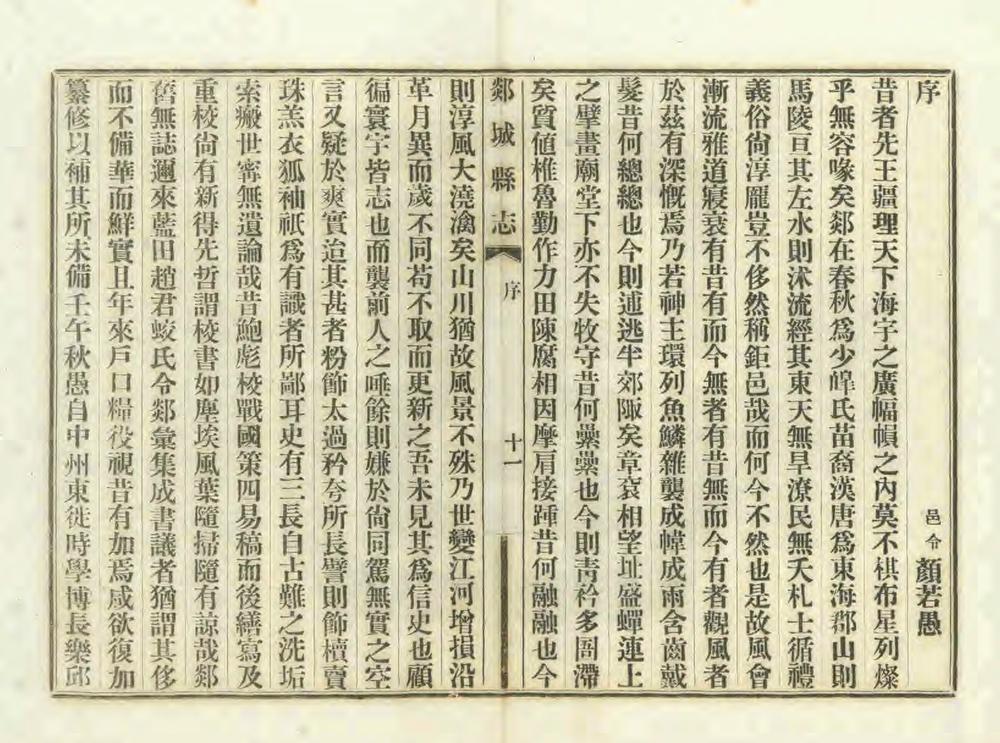 序
邑令 顏若愚
昔者先王疆理天下海宇之廣幅幀之內莫不棋布星列燦
乎無容喙矣郯在春秋爲少皥氏苗裔漢唐爲東海郡山則
馬陵亘其左水則沭流經其東天無旱潦民無夭札士循禮
義俗尙淳龎豈不侈然稱鉅邑哉而何今不然也是故風會
漸流雅道寢衰有昔有而今無者有昔無而今有者觀風者
於茲有深慨焉乃若神主環列魚鱗雜襲成幃成雨含齒戴
髮昔何總總也今則逋逃半郊陬矣章袞相望址盛蟬連上
之擘畫廟堂下亦不失牧守昔何纍纍也今則靑衿多固滯
矣質值椎魯勤作力田陳腐相因摩肩接踵昔何融融也今
郯城縣志 序 十一
則淳風大澆漓矣山川猶故風景不殊乃世變江河增損沿
革月異而歲不同苟不取而更新之吾未見其爲信史也顧
徧寰宇皆志也而襲前人之唾餘則嫌於尙同駕無實之空
言又疑於爽實迨其甚者粉飾太過矜夸所長譬則飾櫝賣
珠羔衣狐袖祇爲有識者所鄙耳史有三長自古難之洗垢
索瘢世寗無遺論哉昔鮑彪校戰國策四易稿而後繕寫及
重校尙有新得先哲謂校書如塵埃風葉隨掃隨有諒哉郯
舊無誌邇來藍田趙君蛟氏令郯彙集成書議者猶謂其侈
而不備華而鮮實且年來戶口糧役視昔有加焉咸欲復加
纂修以補其所未備壬午秋愚自中州東徙時學博長樂邱